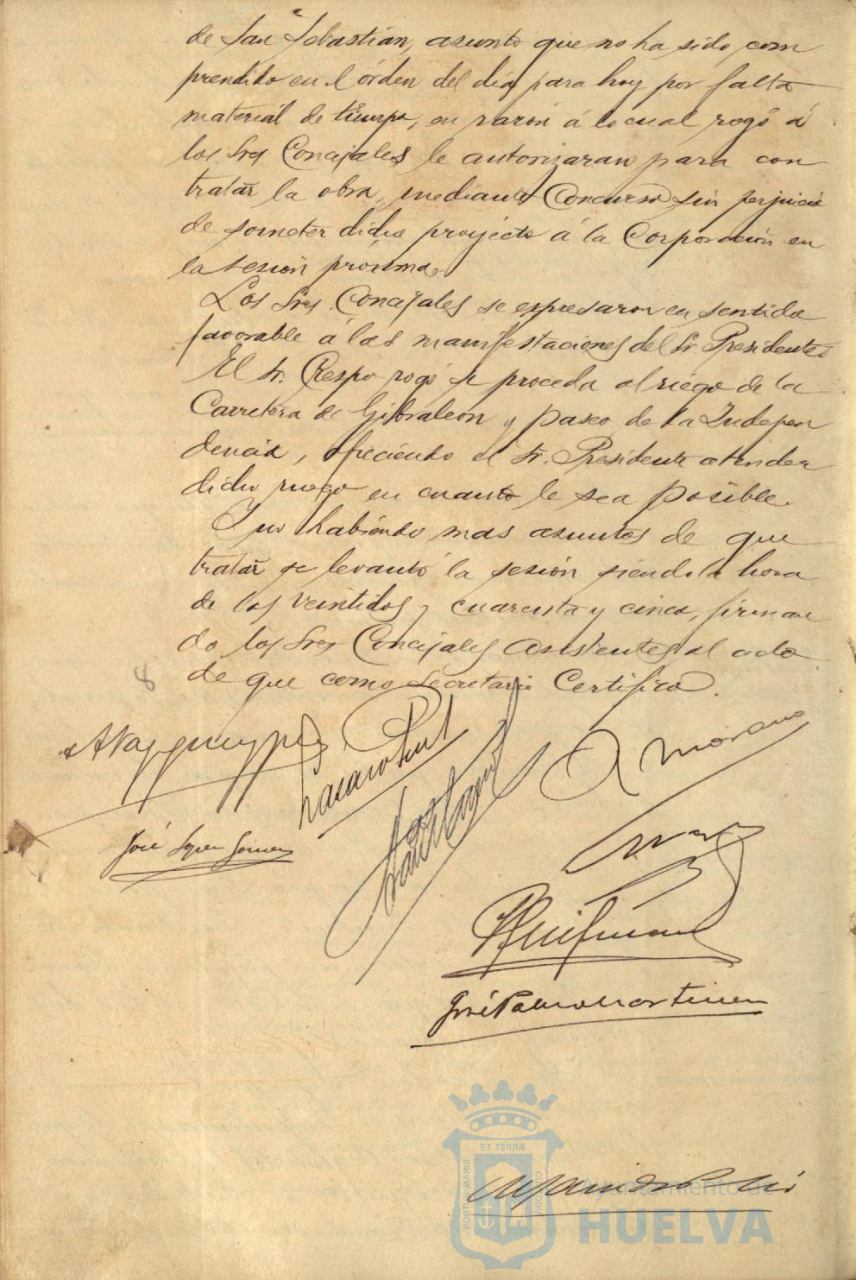 de San Sebastián, asunto que no ha sido com
prendido en el órden del dia para hoy por falta
material de tiempo, en razón á lo cual rogó á
los Sres Concejales le autorizaran para con
tratar la obra, mediante Concurso sin perjuicio
de someter dicho proyecto á la Corporación en
la sesión próxima.
Los Sres. Concejales se expresaron en sentido
favorable á las manifestaciones del Sr. Presidente.
El Sr. Crespo rogó se proceda al riego de la
Carretera de Gibraleon y paseo de la Indepen
dencia, ofreciendo el Sr. Presidente atender
dicho ruego en cuanto le sea posible.
Y no habiendo mas asuntos de que
tratar se levantó la sesión siendo la hora
de las veintidos y cuarenta y cinco, firman
do los Sres Concejales asistentes al acto
de que como Secretario Certifico.
8
A Moreno
José López Gómez
José Palma Martínez
ET TERRÆ
PORTUS MARIS
CUSTODIA
Ayuntamiento de
HUELVA